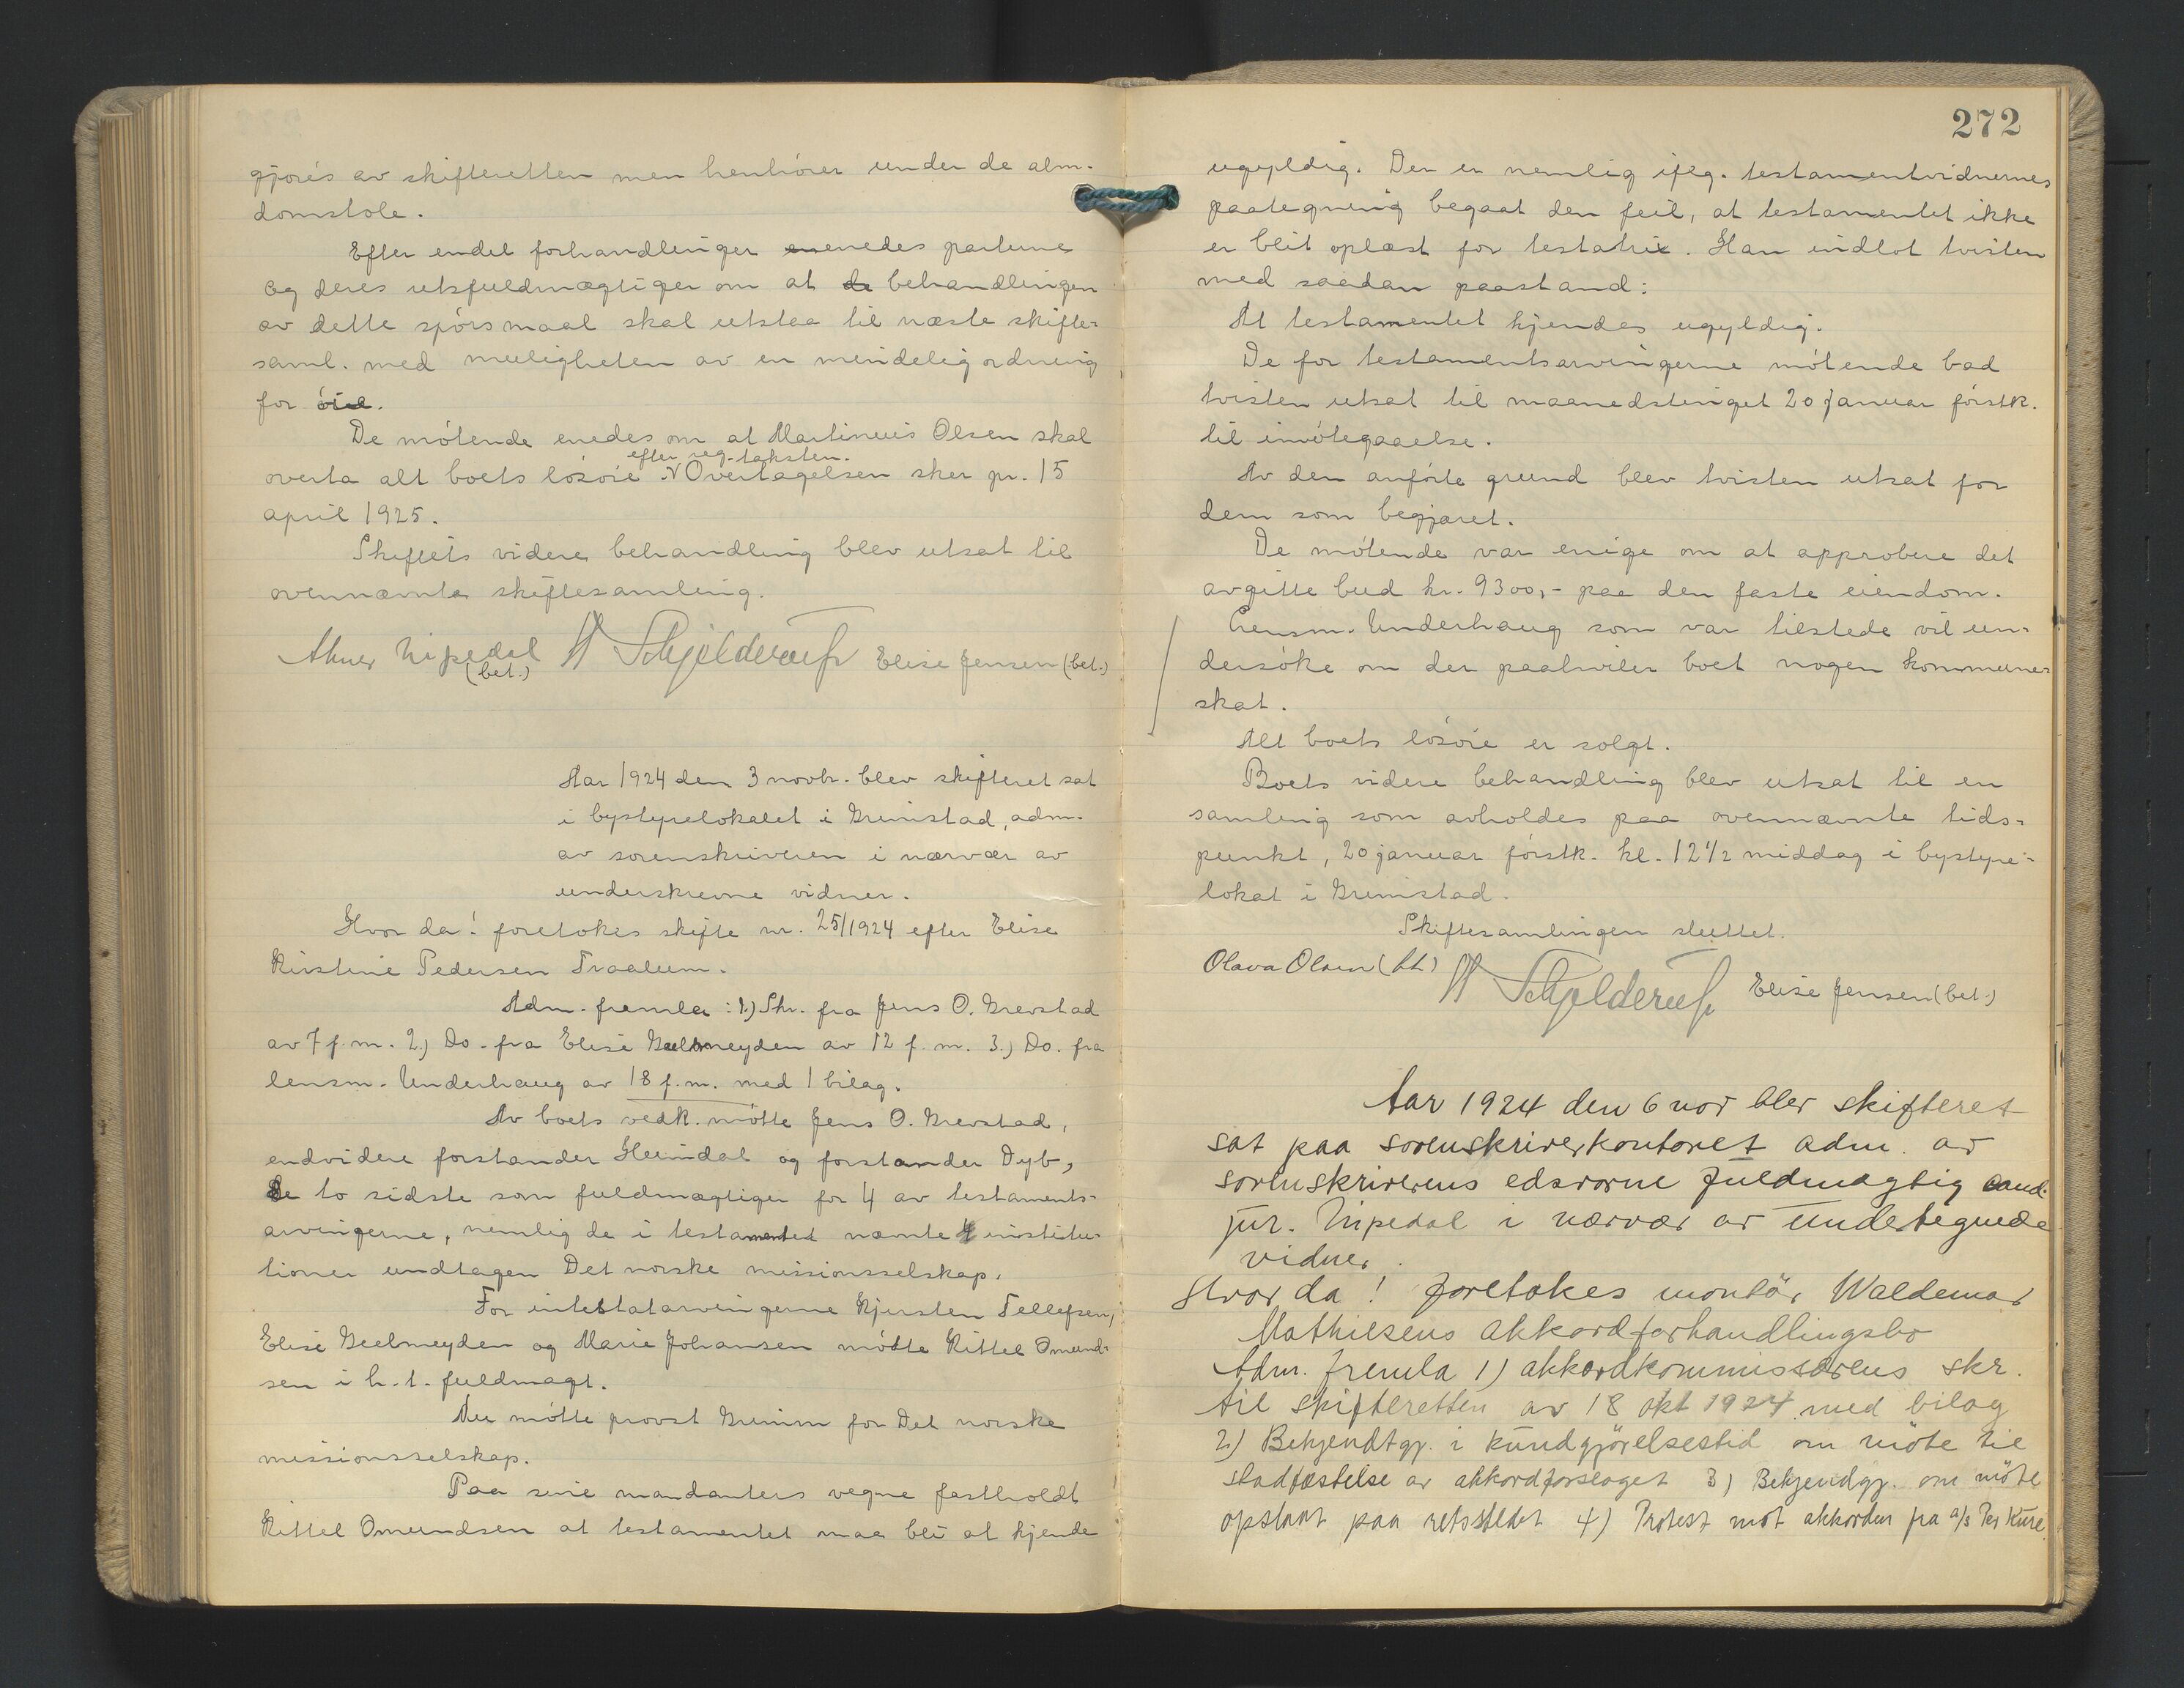 gjøres av skifteretten men henhører under de alm.
domstole.
Efter endel forhandlinger enedes parterne
og deres utsfuldmægtiger om at behandlingen
av dette spørsmaal skal utstaa til næste skifte-
saml. med muligheten av en mindelig ordning
for öie.
De møtende enedes om at Martinius Olsen skal
efter reg. taksten.
overta alt boets løsöre. Overtagelsen sker pr. 15
april 1925.
Skiftets videre behandling blev utsat til
ovennævnte skiftesamling.
Nipedal Schjelderup Elise Jensen (bet.)
(bet.)
Aar 1924 den 3 novbr. blev skifteret sat
i bystyrelokalet i Grimstad, adm.
av sorenskriveren i nærvær av
underskrevne vidner.
Hvor da! foretokes skifte nr. 25/1924 efter Elise
Kirstine Pedersen Traalum.
Adm. fremla: 1.) Skr. fra Jens O. Grevstad
av 7 f. m. 2.) Do. fra Elise Geelmeyden av 12 f. m. 3.) Do. fra
lensm. Underhaug av 18 f. m. med 1 bilag.
Av boets vedk. møtte Jens O. Grevstad,
endvidere forstander Heimdal og forstander Dyb,
de to sidste som fuldmægtiger for 4 av testaments-
arvingerne, nemlig de i testamentet nævnte 4 institu-
tioner undtagen Det norske missionsselskap.
For intestatarvingerne Kjersten Tellefsen,
Elise Geelmeyden og Marie Johansen møtte Kittel Omund-
sen i h. t. fuldmagt.
Nu møtte provst Grimm for Det norske
missionsselskap.
Paa sine mandanters vegne fastholdt
Kittel Omundsen at testamentet maa bli at kjende
272
ugyldig. Der er nemlig iflg. testamentvidnernes
paategning begaat den feil, at testamentet ikke
er blit oplæst for testatrix. Han indlot tvisten
med saadan paastand:
At testamentet kjendes ugyldig.
De for testamentsarvingerne møtende bad
tvisten utsat til maanedstinget 20 januar førstk.
til imøtegaaelse.
Av den anførte grund blev tvisten utsat for
dem som begjæret.
De møtende var enige om at approbere det
avgitte bud kr. 9300,- paa den faste eiendom.
Lensm. Underhaug som var tilstede vil un-
dersøke om der paahviler boet nogen kommune-
skat.
Alt boets løsøre er solgt.
Boets videre behandling blev utsat til en
samling som avholdes paa ovennævnte tids-
punkt, 20 januar førstk. kl. 12 1/2 middag i bystyre-
lokat i Grimstad.
Skiftesamlingen sluttet.
Olava Olsen (bt.) Schjelderup Elise Jensen (bet.)
Aar 1924 den 6 nov blev skifteret
sat paa sorenskriverkontoret adm. av
sorenskriverens edsvorne fuldmægtig cand.
jur. Nipedal i nærvær av undertegnede
vidner.
Hvor da! foretokes montör Waldemar
Mathiesens akkordforhandlingsbo
Adm. fremla 1) akkordkommissærens skr.
til skifteretten av 18 okt 1924 med bilag
2) Bekjendtgj. i kundgjörelsestid om möte til
stadfæstelse av akkordforslaget 3) Bekjendgj. om möte
opslaat paa retsstedet 4) Protest mot akkorden fra a/s Per Kure.